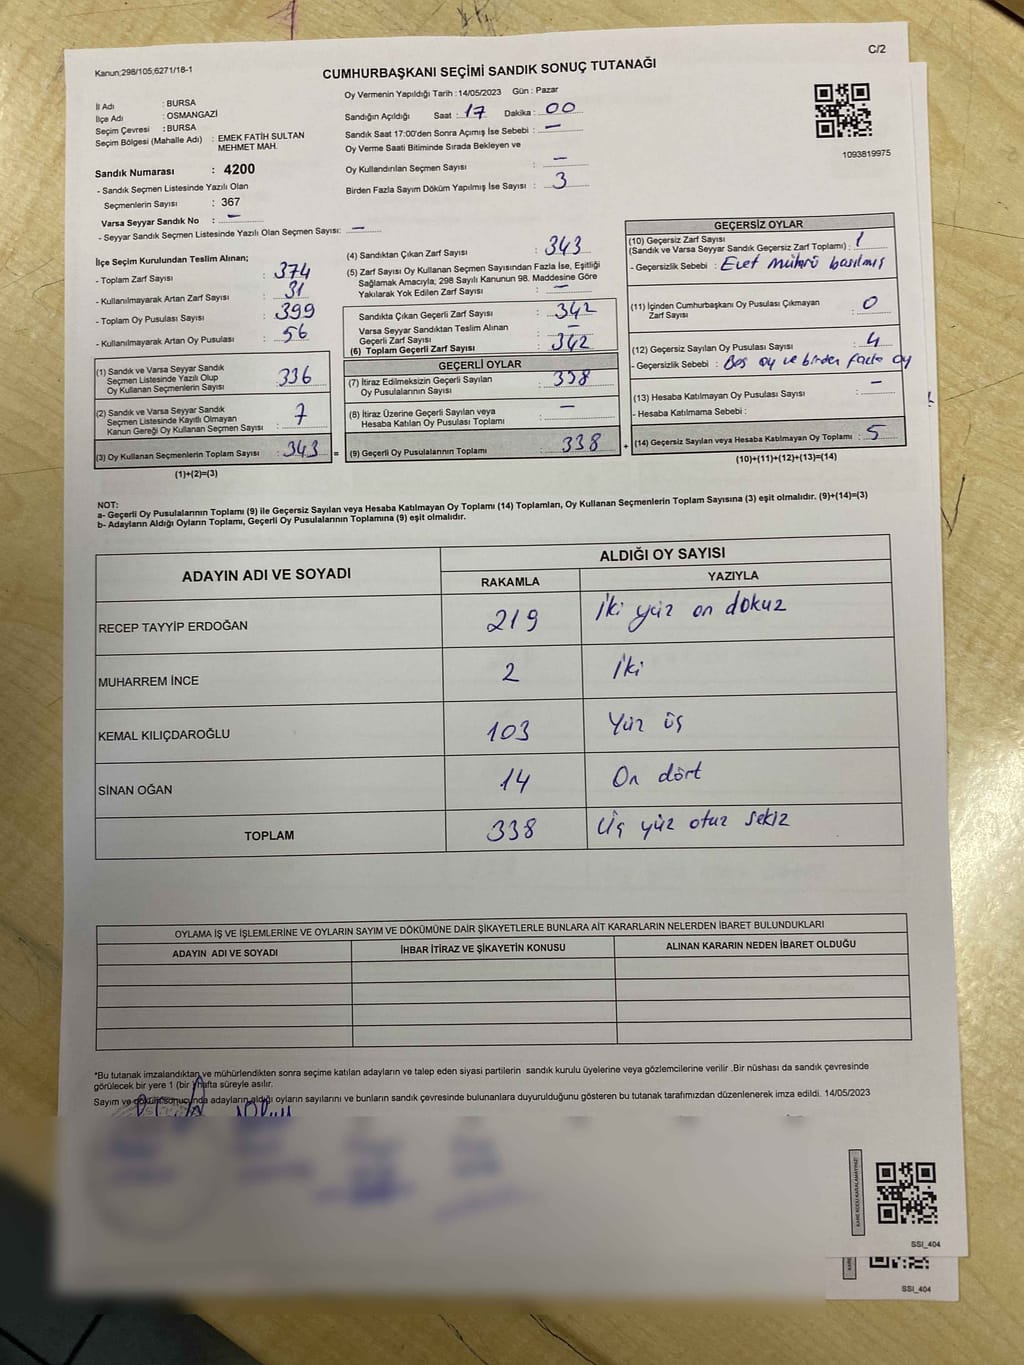 Kanun;298/105;6271/18-1
C/2
CUMHURBAŞKANI SEÇİMİ SANDIK SONUÇ TUTANAĞI
İl Adı : BURSA
İlçe Adı : OSMANGAZİ
Seçim Çevresi : BURSA
Seçim Bölgesi (Mahalle Adı) : EMEK FATİH SULTAN
MEHMET MAH.
Sandık Numarası : 4200
- Sandık Seçmen Listesinde Yazılı Olan
Seçmenlerin Sayısı : 367
Varsa Seyyar Sandık No : —
- Seyyar Sandık Seçmen Listesinde Yazılı Olan Seçmen Sayısı: —
Oy Vermenin Yapıldığı Tarih : 14/05/2023 Gün : Pazar
Sandığın Açıldığı Saat : 17 Dakika : 00
Sandık Saat 17:00'den Sonra Açımış İse Sebebi : —
Oy Verme Saati Bitiminde Sırada Bekleyen ve
Oy Kullandırılan Seçmen Sayısı : —
Birden Fazla Sayım Döküm Yapılmış İse Sayısı : 3
1093819975
İlçe Seçim Kurulundan Teslim Alınan;
- Toplam Zarf Sayısı : 374
- Kullanılmayarak Artan Zarf Sayısı : 31
- Toplam Oy Pusulası Sayısı : 399
- Kullanılmayarak Artan Oy Pusulası : 56
(1) Sandık ve Varsa Seyyar Sandık
Seçmen Listesinde Yazılı Olup
Oy Kullanan Seçmenlerin Sayısı : 336
(2) Sandık ve Varsa Seyyar Sandık
Seçmen Listesinde Kayıtlı Olmayan
Kanun Gereği Oy Kullanan Seçmen Sayısı : 7
(3) Oy Kullanan Seçmenlerin Toplam Sayısı : 343 =
(1)+(2)=(3)
(4) Sandıktan Çıkan Zarf Sayısı : 343
(5) Zarf Sayısı Oy Kullanan Seçmen Sayısından Fazla İse, Eşitliği
Sağlamak Amacıyla; 298 Sayılı Kanunun 98. Maddesine Göre
Yakılarak Yok Edilen Zarf Sayısı : —
Sandıkta Çıkan Geçerli Zarf Sayısı : 342
Varsa Seyyar Sandıktan Teslim Alınan
Geçerli Zarf Sayısı : —
(6) Toplam Geçerli Zarf Sayısı : 342
GEÇERLİ OYLAR
(7) İtiraz Edilmeksizin Geçerli Sayılan
Oy Pusulasının Sayısı : 338
(8) İtiraz Üzerine Geçerli Sayılan veya
Hesaba Katılan Oy Pusulası Toplamı : —
(9) Geçerli Oy Pusulalarının Toplamı : 338 +
GEÇERSİZ OYLAR
(10) Geçersiz Zarf Sayısı
(Sandık ve Varsa Seyyar Sandık Geçersiz Zarf Toplamı) : 1
- Geçersizlik Sebebi : Evet mührü basılmış
(11) İçinden Cumhurbaşkanı Oy Pusulası Çıkmayan
Zarf Sayısı : 0
(12) Geçersiz Sayılan Oy Pusulası Sayısı : 4
- Geçersizlik Sebebi : Boş oy ve birden fazla oy
(13) Hesaba Katılmayan Oy Pusulası Sayısı : —
- Hesaba Katılmama Sebebi :
(14) Geçersiz Sayılan veya Hesaba Katılmayan Oy Toplamı : 5
(10)+(11)+(12)+(13)=(14)
NOT:
a- Geçerli Oy Pusulalarının Toplamı (9) ile Geçersiz Sayılan veya Hesaba Katılmayan Oy Toplamı (14) Toplamları, Oy Kullanan Seçmenlerin Toplam Sayısına (3) eşit olmalıdır. (9)+(14)=(3)
b- Adayların Aldığı Oyların Toplamı, Geçerli Oy Pusulalarının Toplamına (9) eşit olmalıdır.
ADAYIN ADI VE SOYADI ALDIĞI OY SAYISI
RAKAMLA YAZIYLA
RECEP TAYYİP ERDOĞAN 219 İki yüz on dokuz
MUHARREM İNCE 2 İki
KEMAL KILIÇDAROĞLU 103 Yüz üç
SİNAN OĞAN 14 On dört
TOPLAM 338 Üç yüz otuz sekiz
OYLAMA İŞ VE İŞLEMLERİNE VE OYLARIN SAYIM VE DÖKÜMÜNE DAİR ŞİKAYETLERLE BUNLARA AİT KARARLARIN NELERDEN İBARET BULUNDUKLARI
ADAYIN ADI VE SOYADI İHBAR İTİRAZ VE ŞİKAYETİN KONUSU ALINAN KARARIN NEDEN İBARET OLDUĞU
*Bu tutanak imzalandıktan ve mühürlendikten sonra seçime katılan adayların ve talep eden siyasi partilerin sandık kurulu üyelerine veya gözlemcilerine verilir .Bir nüshası da sandık çevresinde
görülecek bir yere 1 (bir) hafta süreyle asılır.
Sayım ve döküm sonucunda adayların aldığı oyların sayılarını ve bunların sandık çevresinde bulunanlara duyurulduğunu gösteren bu tutanak tarafımızdan düzenlenerek imza edildi. 14/05/2023
KARE KODU KARALAMAYINIZ!
SSI_404
SSI_404